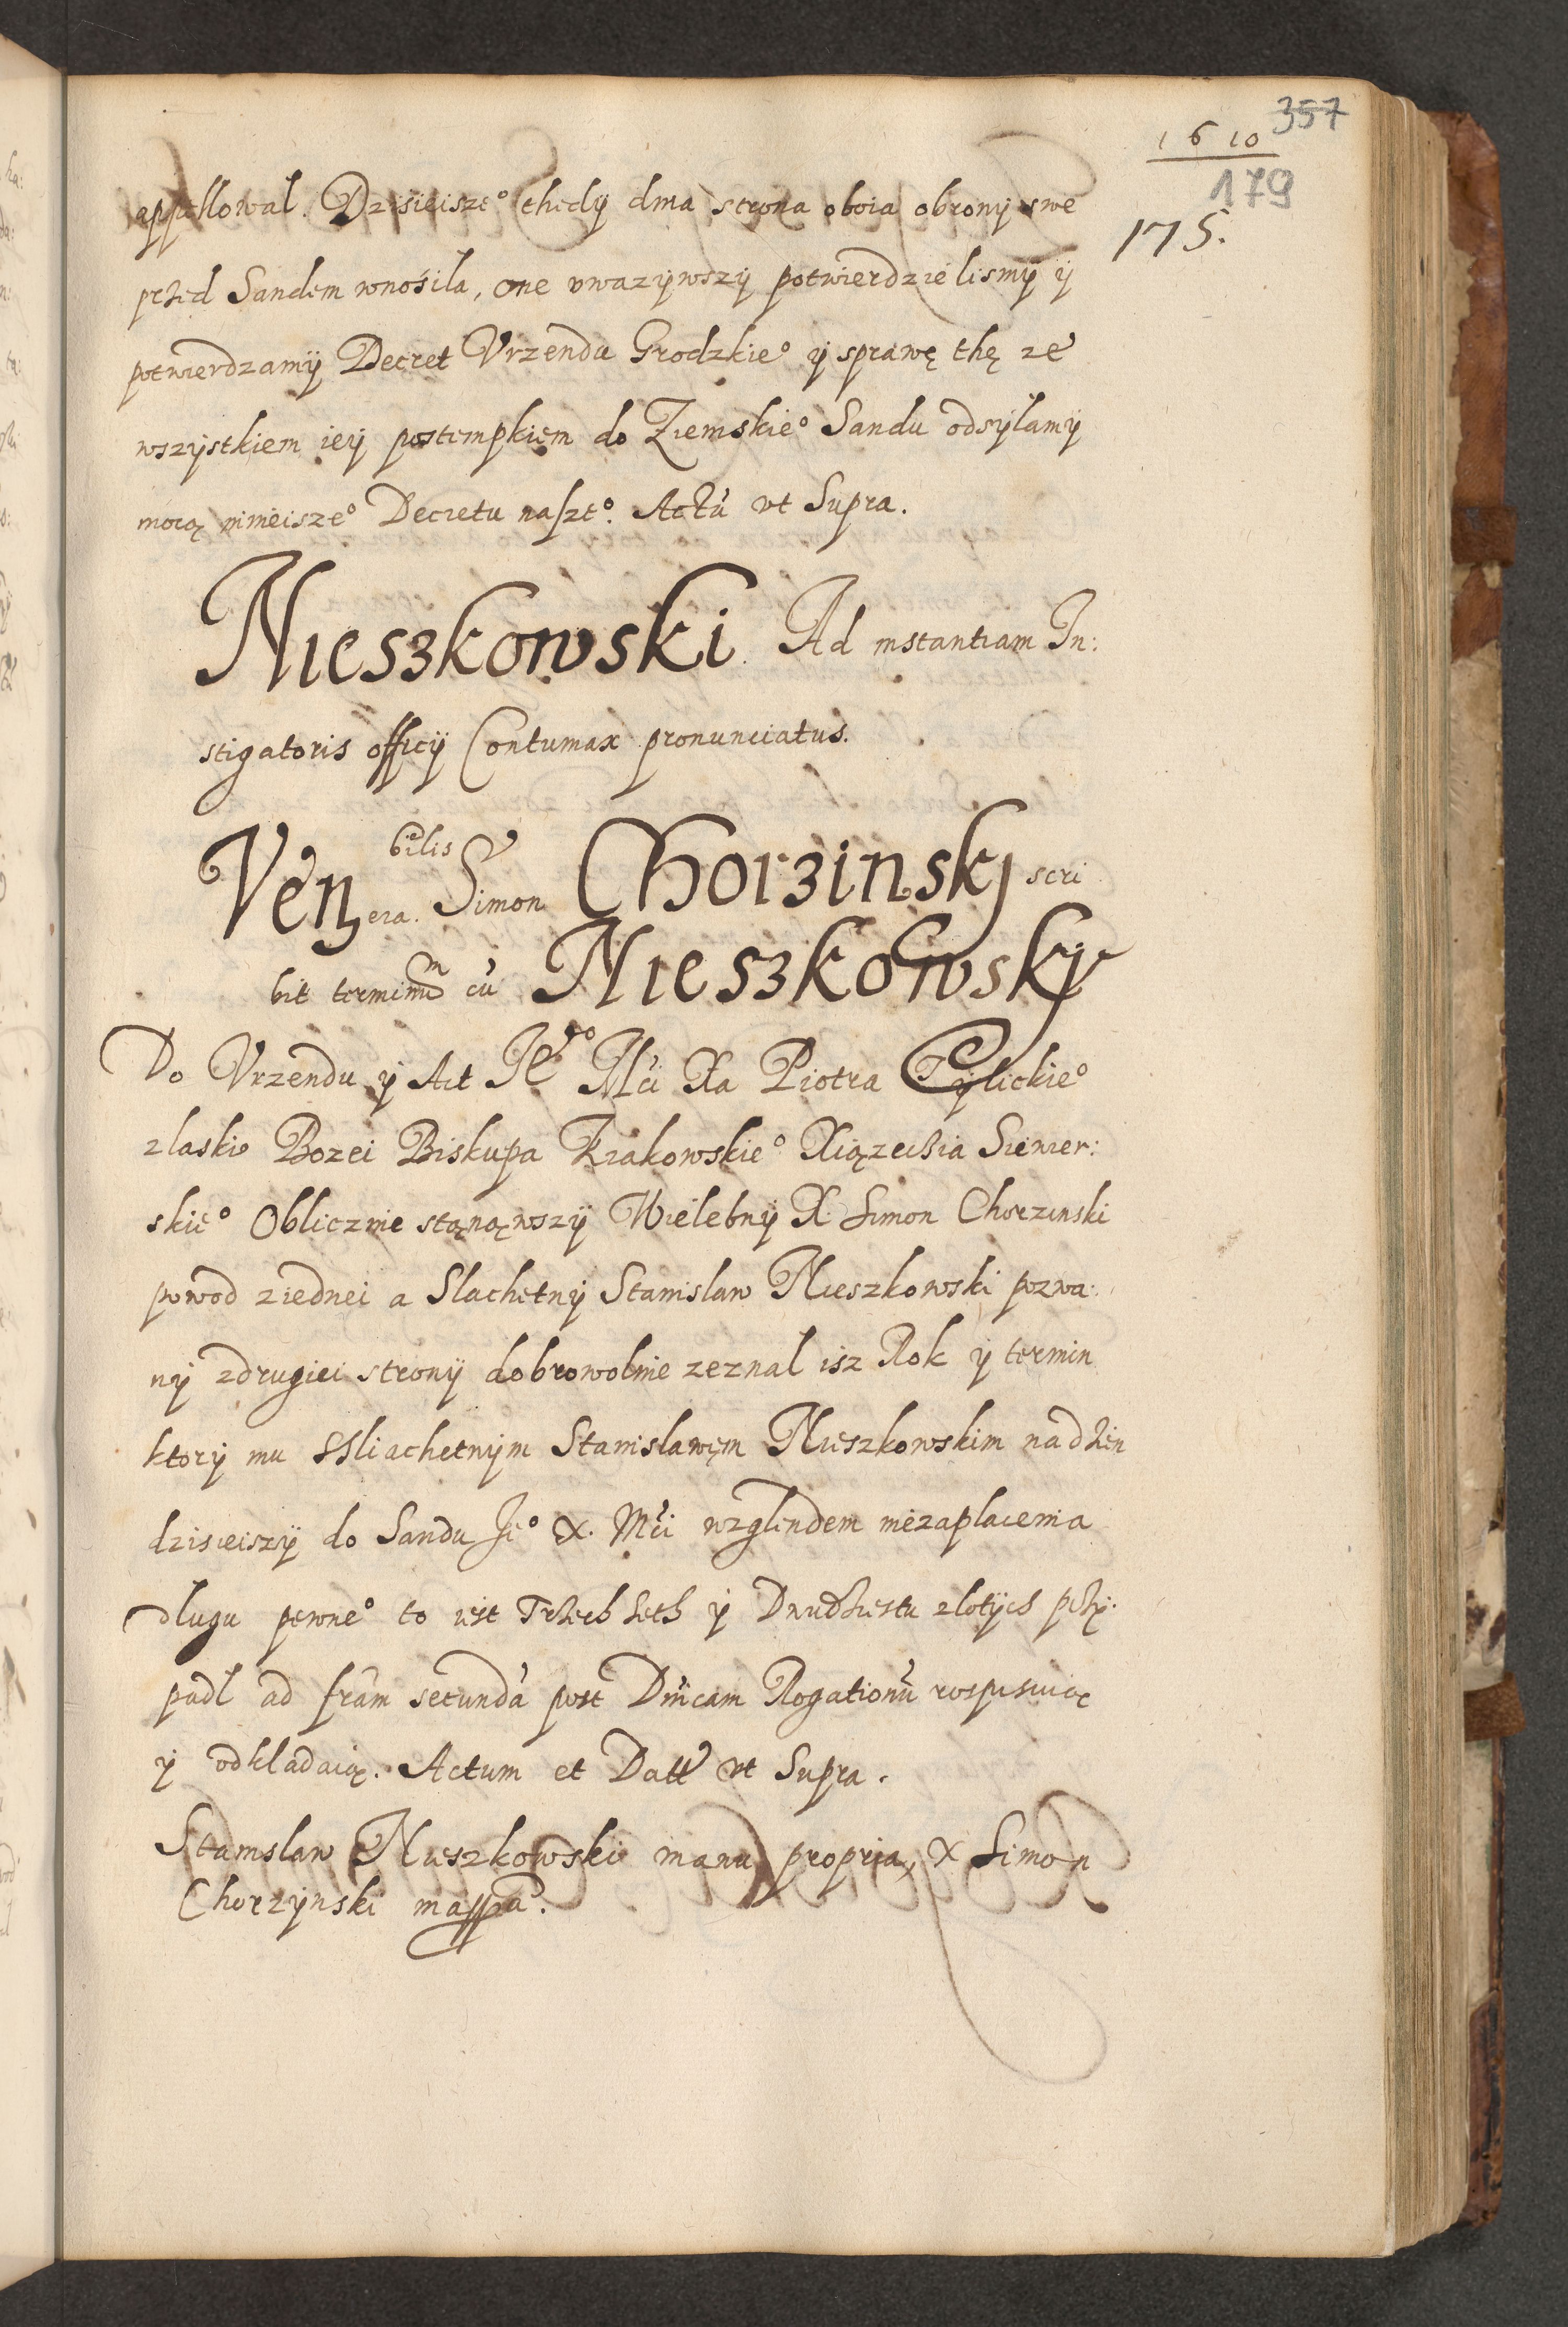 357
1610
179
175.
appellowal. Dzisieisze° thedÿ dnia strona oboia obronÿ swe
przed Sandem wnosila, one uwazÿwszÿ potwierdzielismÿ ÿ
potwierdzamÿ Decret Vrzendu Grodzkie° ÿ sprawę thę ze
wszÿstkiem ieÿ postempkiem do Ziemskie° Sandu odsÿlamÿ
mocą ninieisze° Decretu nasze°. Actũ ut Supra.
Nieszkowski. Ad instantiam In:
stigatoris officÿ Contumax pronunciatus.
Venera.bilis Simon Chorzinskj scri
bit terminum cũ Nieszkowskj
Do Vrzendu ÿ Act Je° Mći Xa Piotra Tÿlickie°
zlaski Bozei Biskupa Krakowskie° Xiązecia Siewier:
skie° Oblicznie stąnąwszÿ Wielebnÿ X. Simon Chorzinski
powod ziednei a Slachetnÿ Stanislaw Nieszkowski pozwa:
nÿ zdrugiei stronÿ dobrowolnie zeznal isz Rok ÿ termin
ktorÿ mu SSliachetnÿm Stanislawem Nieszkowskim na dzien
dzisieiszÿ do Sandu Je° X. Mći wzglendem niezaplacenia
dlugu pewne° to iest Trzech seth ÿ Dwudziestu zlotÿch przÿ:
padl ad fram secundã post Dñicam Rogationũ
ÿ odkladaią. Actum et Datt ut Supra.
Stanislaw Nieszkowski manu propria, X Simon
Chorzÿnski mappa.